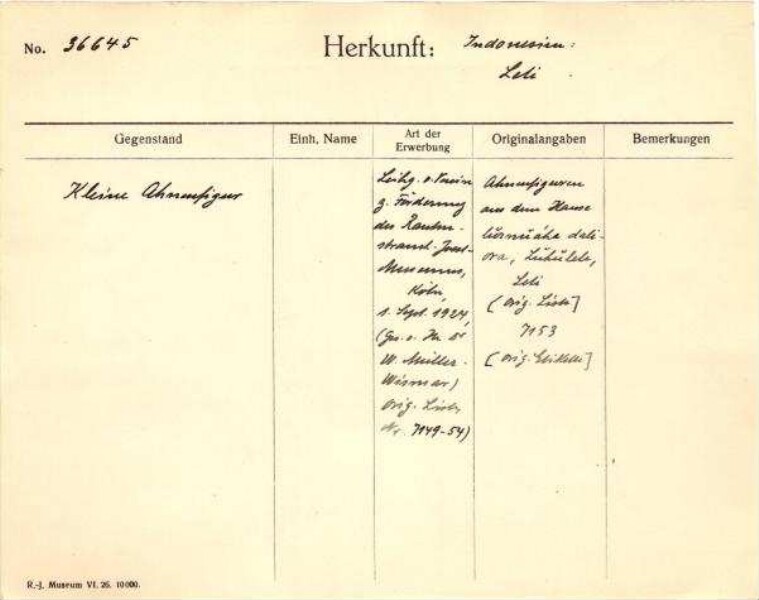 No. 36645 Herkunft: Indonesien:
Leti
Gegenstand Einh. Name Art der Erwerbung Originalangaben Bemerkungen
Kleine Ahnenfigur
Leihg. v. Verein
z. Förderung
des Rauten-
strauch-Joest-
Museums,
Köln,
1. Sept. 1924,
(Ges. v. Hr. Dr
W. Müller-
Wismar)
orig. Liste
Nr. 7149-54)
Ahnenfiguren
aus dem Hause
dali-
ora, Luhulele,
Leti
(orig. Liste]
7153
[orig. Etikette]
R.-J. Museum VI. 26. 10000.